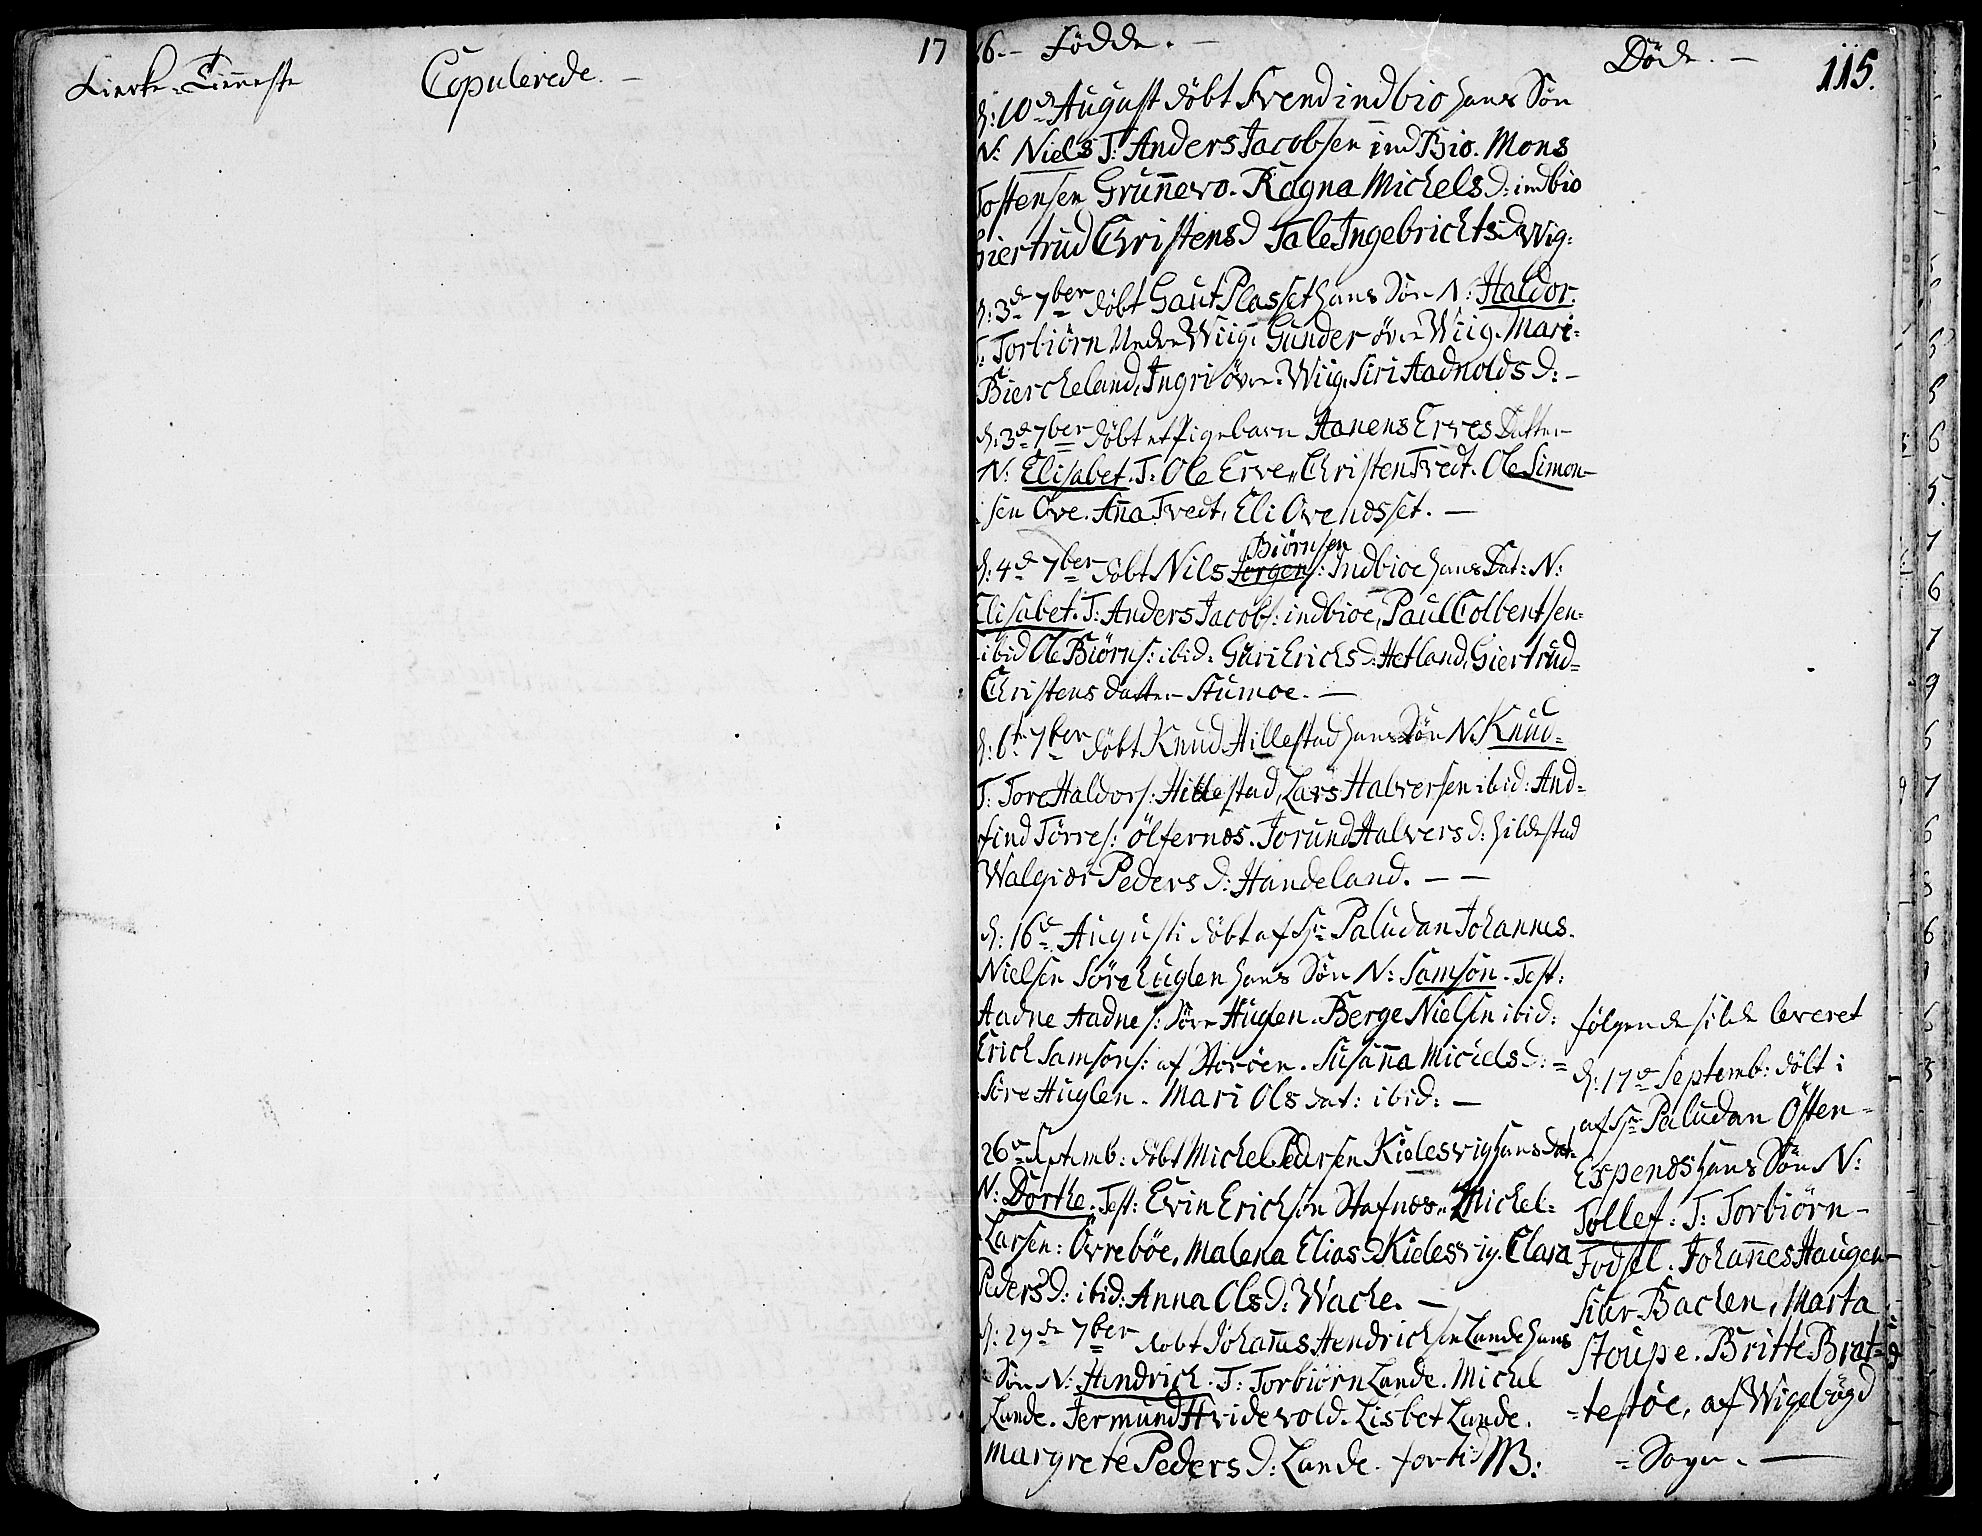 Kierke-Tieneste
Copulerede. -
17
6. - Födde. -
Döde. -
115.
d: 10de August döbt Svend indbio hans Sön
N: Niels T: Anders Jacobsen ind Bio. Mons
Tostensen Grunnevo. Ragna Michelsd: indbio
Giertrud Christensd Tale Ingebrichtsd Wiig:
d: 3de 7ber döbt Gaut Plasset hans Sön N: Haldor.
T: Torbiörn Under Wiig. Gunder över Wiig. Mari-
Biercheland, Ingri över Wiig. Siri Aadnolds D: -
d: 3de 7ber döbt et Pigebarn Aanens Erves Datter
N: Elisabet. T: Ole Erve, Christen Tvedt. Ole Simon-
sen Ove. Anna Tvedt, Eli Ovendsset. -
Biörnsen
d: 4de 7ber döbt Nils Jörgens: Indbioe hans Dat: N:
Elisabet. T: Anders Jacobs: indbioe, Paul Colbentsen-
ibid Ole Biörns: ibid. Guri Erichsd: Hetland, Giertrud-
Christens datter Stumoe. -
d: 6te 7ber döbt Knud Hillestad hans Sön N. Knud-
T: Tore Haldors: Hillestad, Lars Halversen ibid: And-
find Törres: Ölfernes. Jorund Halversd: Hildestad
Walgier Peders D: Handeland. - -
d: 16de Augusti döbt af Hr Paludan Johannes
Nielsen Söre Huglen hans Sön N: Samson. Test:
Aadne Aadnes: Söre Huglen. Berge Nielsen ibid:
Erich Samsons: af Storöen. Susanna Michelsd: =
Söre Huglen. Mari Ols dat: ibid: -
26de Septemb: döbt Michel Pedersen Kielesvig hans Dat:
N: Dorthe. Test: Evin Erichsen Stafnes. Michel-
Larsen: Övreböe, Malena Eliasd Kielesvig. Clara
Peders D: ibid: Anna Olsd: Wache. -
d: 29de 7ber döbt Johannes Hendrichsen Lande hans
Sön N: Hendrich. T: Torbiörn Lande. Michel
Lande. Jermund Hvidevold. Lisbet Lande.
Margrete Peders D: Lande. NB:
følgende silde leveret
d: 17de Septemb: döbt i
af Hr Paludan Östen-
Espends hans Sön N:
Tollef: T: Torbiörn-
Fodsel. Johannes Haugen
Siur Bachen, Marta
Stoupe. Britte Brat-
=testöe, af Wigebögd
= Sogn. -